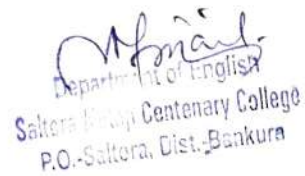 Department of English
Saltora Centenary College
P.O.-Saltora, Dist.-Bankura